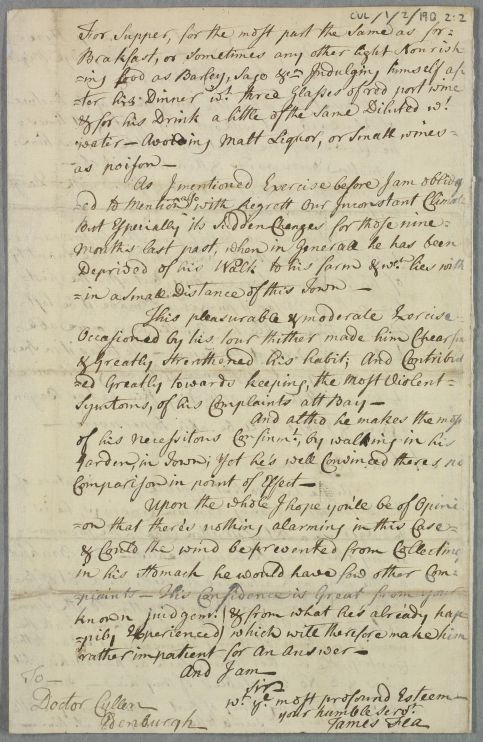 CUL/1/2/190 2:2
For Supper, for the most part the Same as for=
Brakfast, or sometimes any other light Nourish
=ing food as Barley, Sago &c Indulging himself af
=ter his Dinner wt. three Glasses of red port wine
& for his Drink a little of the Same Diluted wt.
water — Avoiding Malt Liquor, or Small wines=
as poison —
As I mentioned Exercise before I am oblidg
=ed to Mention also with Regrett Our Inconstant Climate
but Especially its Sudden Changes for those nine
Months last past, when in Generall he has been
Deprived of his Walk to his farm & wch. lies with
=in a small Distance of this Town —
This pleasurable & moderate Exercise=
Occasioned by his tour thither made him Chearfu
& Greatly Strenthened his habit; And Contribut
=ed Greatly towards keeping, the Most Violent=
Symtoms, of his Complaints att Bay —
And altho he makes the most
of his necessitous Confinmt. by walking in his
Garden, in Town; Yet he's well Convinced there's no
Comparison in point of Effect —
Upon the whole I hope you'le be of Opini
=on that there's nothing alarming in this Case=
& Could the wind be prevented from Collecting
in his Stomach he would have few other Com=
=plaints — His Confidence is Great from your
known judgemt. (& from what he's already hap
=pily Experienced) which will therefore make him
rather impatient for An Answer —
And I am
Sir
wt. ye. most profound Esteem
your humble Servt.
James Fea
To —
Doctor Cullen
Edenburgh